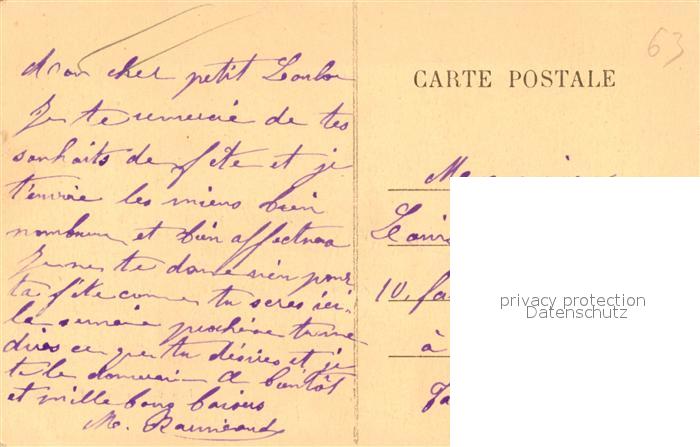 Mon cher petit Loulou
Je te remercie de tes
souhaits de fête et je
t'envoie les miens bien
nombreux et bien affectueux
Je ne te donne rien pour
ta fête comme tu seras ici
la semaine prochaine tu me
diras ce que tu désires et je
te le donnerai à bientôt
et mille bons baisers
M.
63
CARTE POSTALE
Louis
10, fa
à
privacy protection
Datenschutz